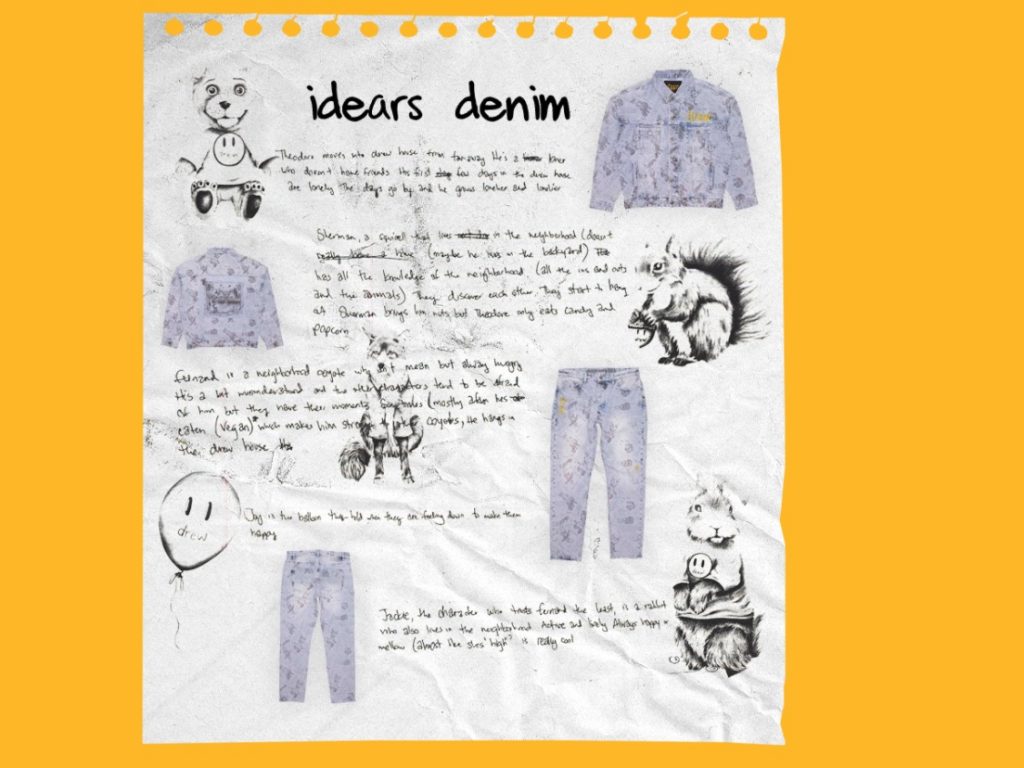 idears denim
Theodore moves into drew house from faraway He's a loner
who doesn't have friends His first few days in the drew house
are lonely The days go by and he grows lonelier and lonelier
drew
Sherman, a squirell that lives in the neighborhood (doesn't
really have a home (maybe he lives in the backyard)
has all the knowledge of the neighborhood (all the ins and outs
and the animals) They discover each other. They start to hang
out Sherman brings him nuts, but Theodore only eats candy and
popcorn
Fernand is a neighborhood coyote who isn't mean but always hungry
He's a bit misunderstood and the other characters tend to be afraid
of him but they have their moments Sometimes (mostly after he's
eaten (vegan)* which makes him coyotes, He hangs in
the drew house
drew
Joy is the balloon they hold when they are feeling down to make them
happy
Jackie, the character who trusts fernand the least, is a rabbit
who also lives in the neighborhood Active and lively Always happy +
mellow (almost like shes "high" is really cool
drew